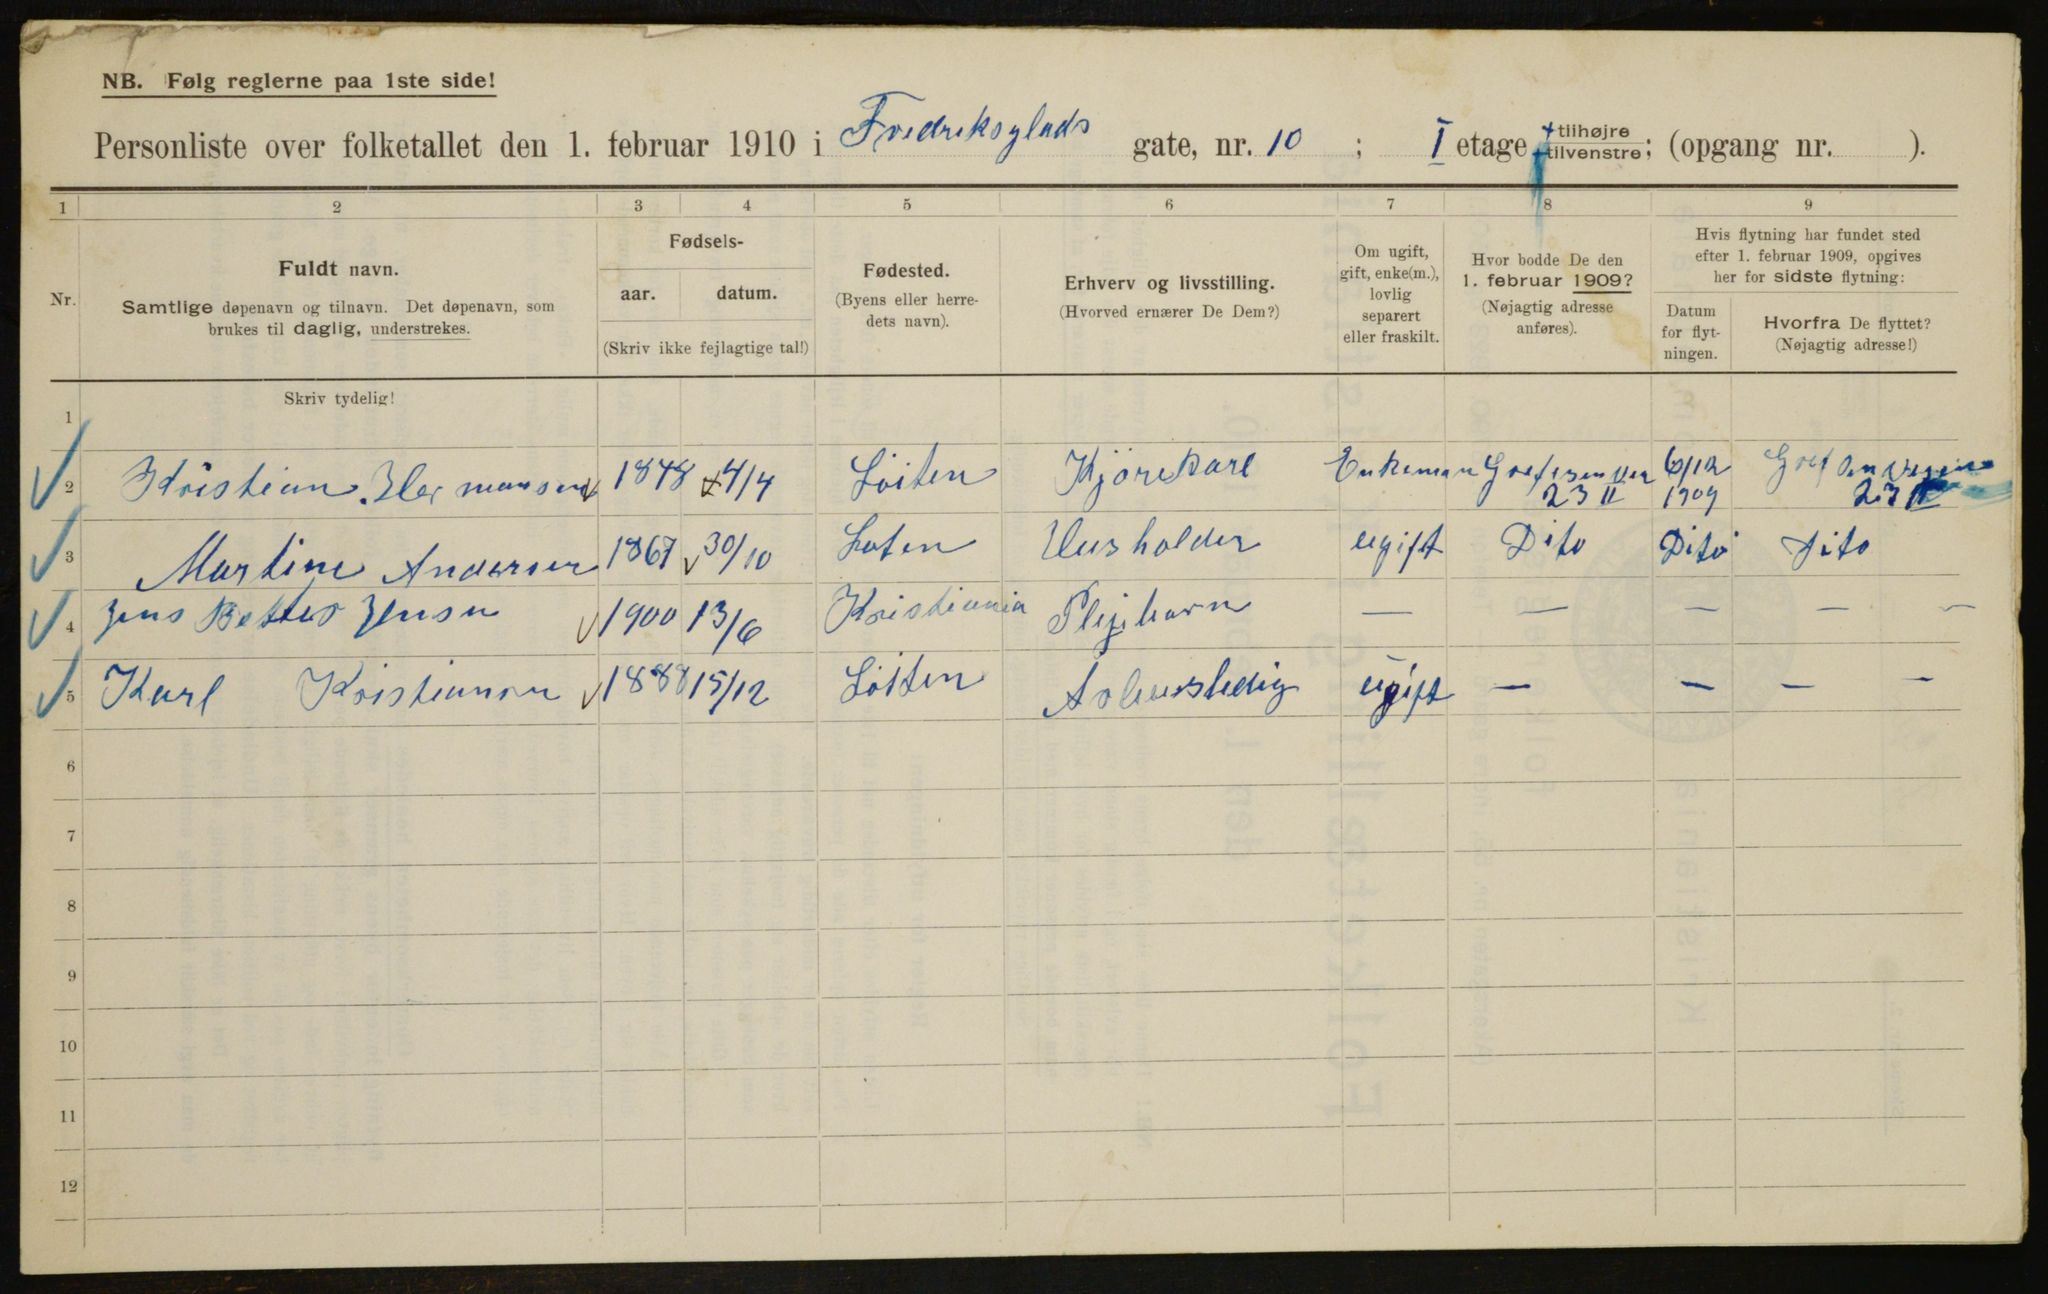 NB. Følg reglerne paa 1ste side!
Personliste over folketallet den 1. februar 1910 i Fredriksglads gate, nr. 10 ; I etage tilhøjre tilvenstre; (opgang nr. ).
1 2 3 4 5 6 7 8 9
Nr.
Fuldt navn.
Samtlige døpenavn og tilnavn. Det døpenavn, som
brukes til daglig, understrekes.
Fødsels-
aar. datum.
(Skriv ikke fejlagtige tal!)
Fødested.
(Byens eller herre-
dets navn).
Erhverv og livsstilling.
(Hvorved ernærer De Dem?)
Om ugift,
gift, enke(m.),
lovlig
separert
eller fraskilt.
Hvor bodde De den
1. februar 1909?
(Nøjagtig adresse
anføres).
Hvis flytning har fundet sted
efter 1. februar 1909, opgives
her for sidste flytning:
Datum
for flyt-
ningen.
Hvorfra De flyttet?
(Nøjagtig adresse!)
Skriv tydelig!
1
2 Kristian Hermansen 1848 4/4 Löiten Kjørekarl Enkeman Grefsenvei 23 II 6/12 1909 Grefsenveien 23 II
3 Martine Andersen 1867 30/10 Loten Husholder ugift Dito Dito Dito
4 Jens Jensen 1900 13/6 Kristiania Plejebarn — — — — —
5 Karl Kristiansen 1888 15/12 Löiten Arbeisledig ugift — — — —
6
7
8
9
10
11
12